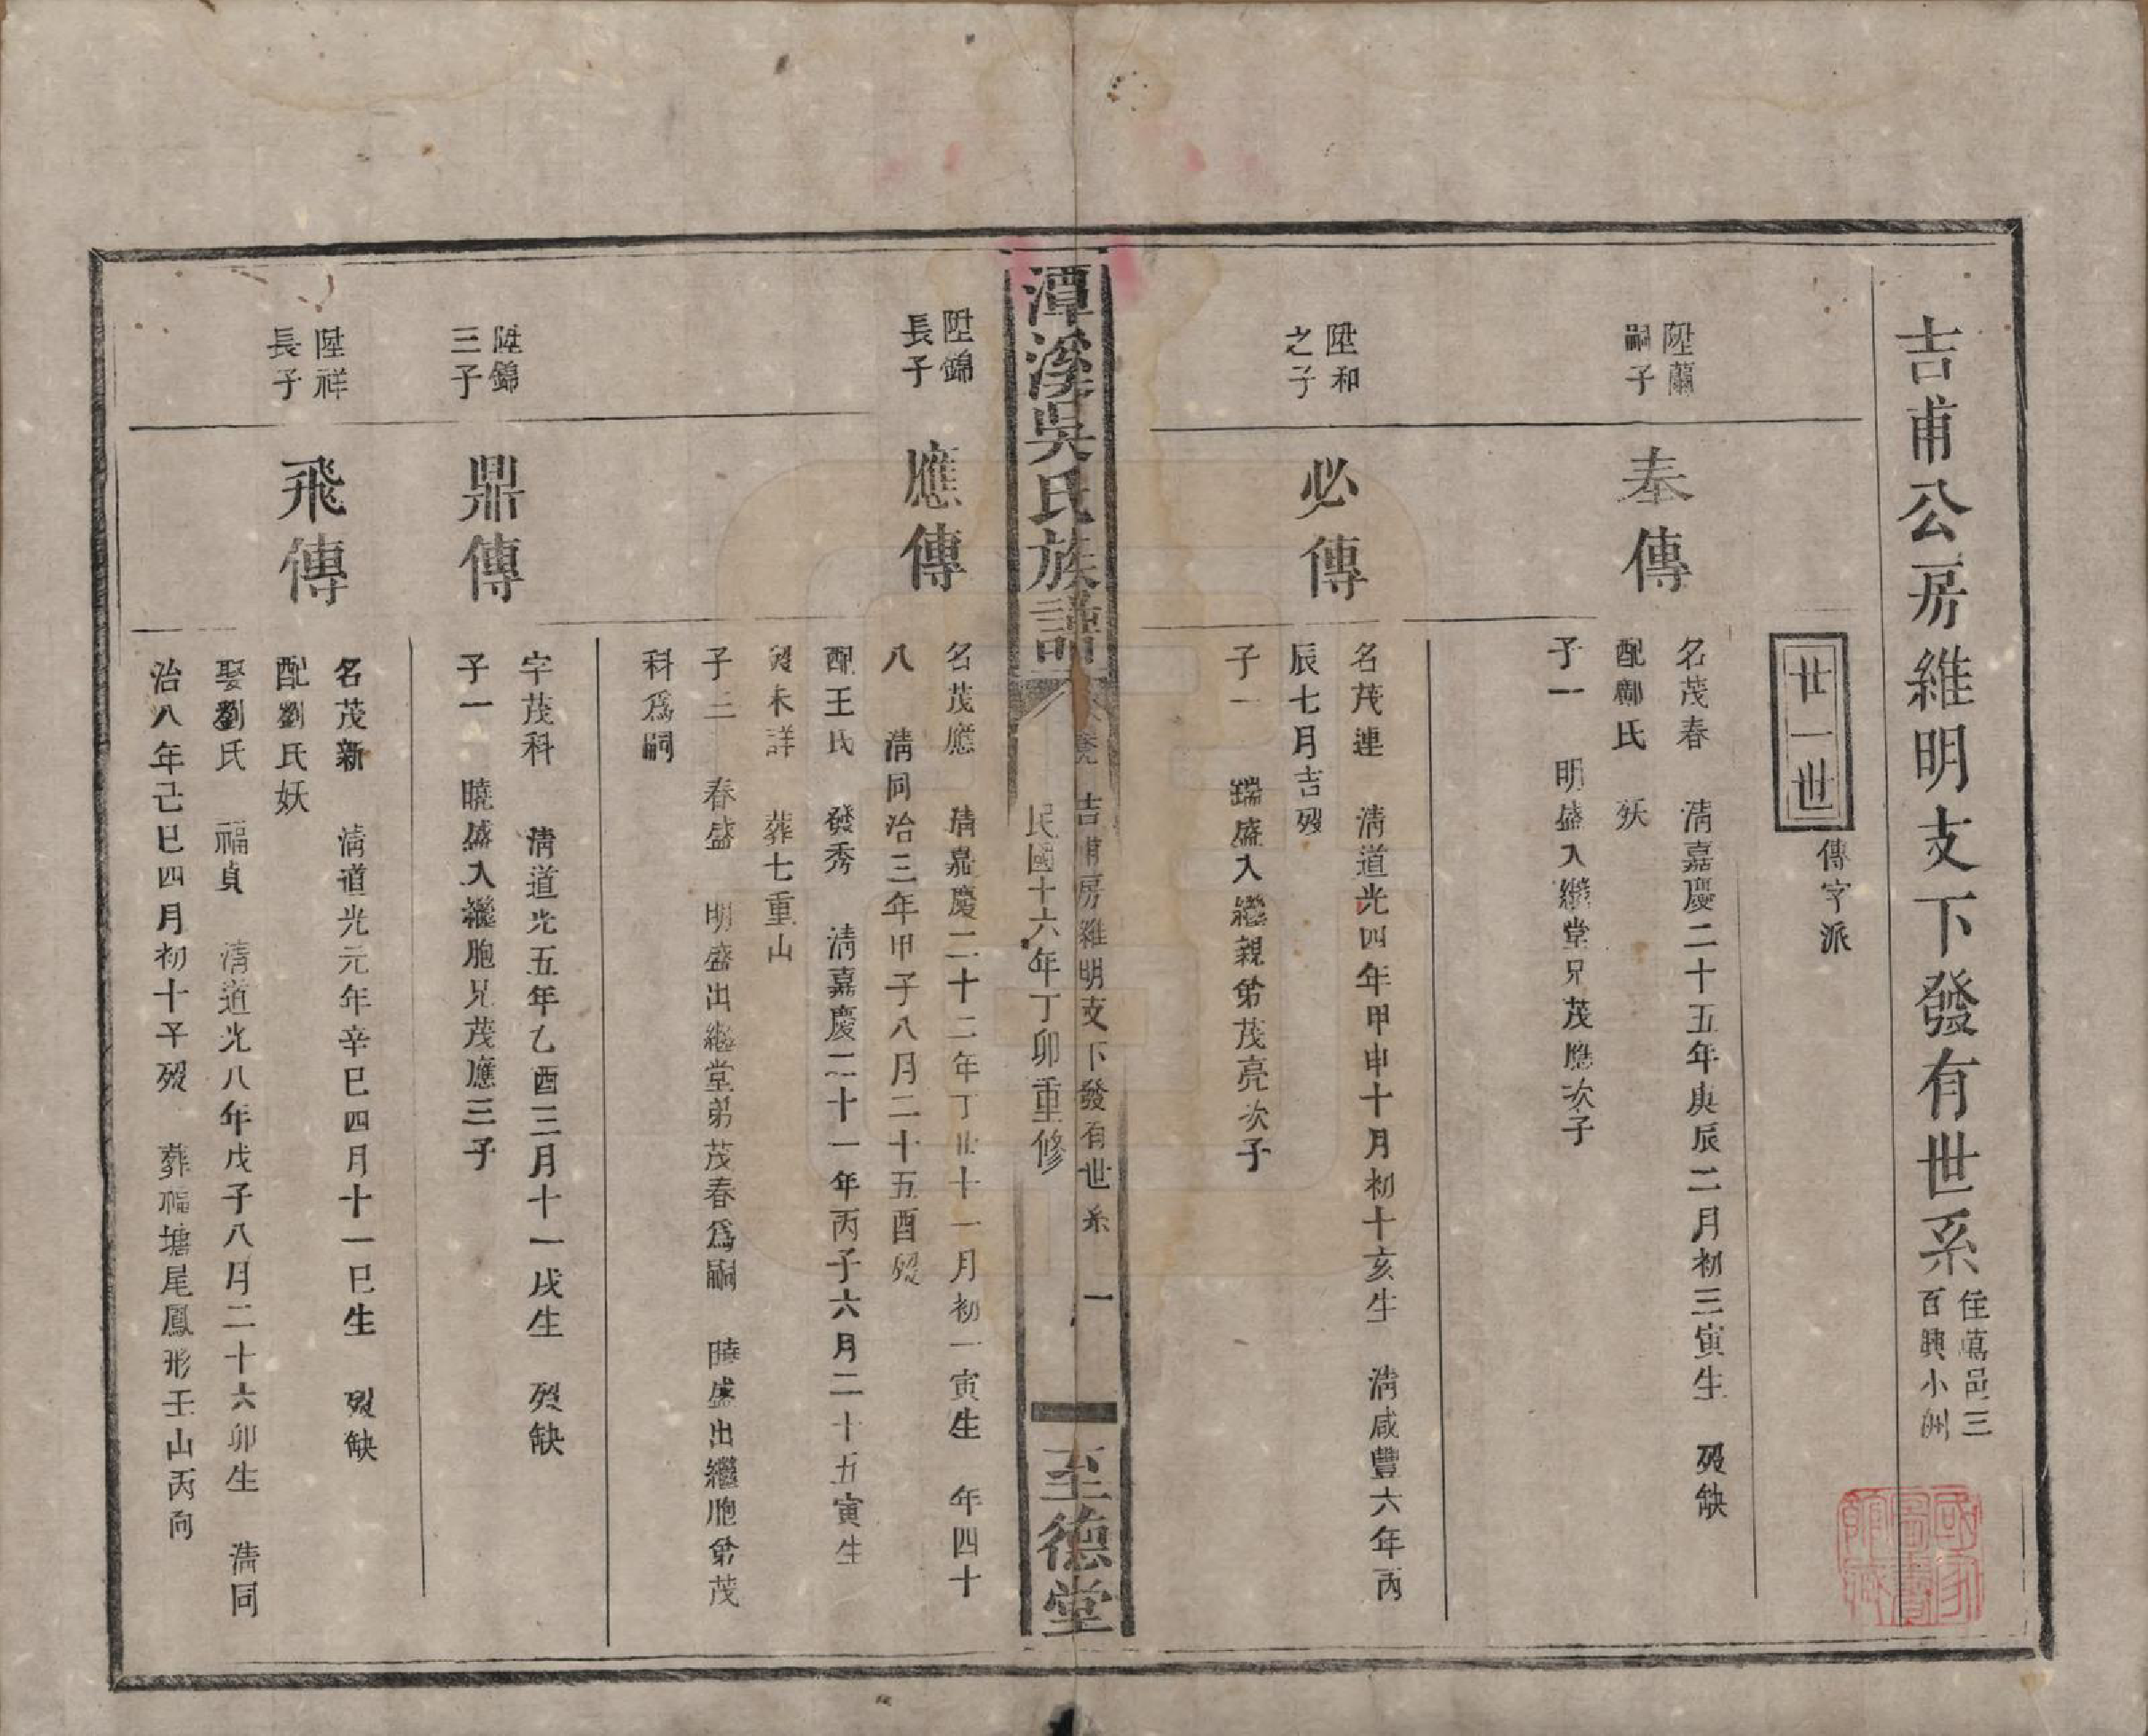 吉甫公房維明支下發有世系
住萬邑三
百興小洲
廿一世
傳字派
陞蘭
嗣子
奉傳
名茂春 清嘉慶二十五年庚辰二月初三寅生 歿缺
配鄺氏 妖
子一 明盛入繼堂兄茂應次子
陞和
之子
必傳
名茂連 清道光四年甲申十月初十亥生 清咸豐六年丙
辰七月吉歿
子一 瑞盛入繼親弟茂亮次子
潭溪吳氏族譜
卷 吉甫房維明支下發有世系 一
民國十六年丁卯重修
至德堂
陞錦
長子
應傳
名茂應 清嘉慶二十二年丁丑十一月初一寅生 年四十
八 清同治三年甲子八月二十五酉歿
配王氏 發秀 清嘉慶二十一年丙子六月二十五寅生
歿未詳 葬七重山
子三 春盛 明盛出繼堂弟茂春爲嗣 曉盛出繼胞弟茂
科爲嗣
陞錦
三子
鼎傳
字茂科 清道光五年乙酉三月十一戌生 歿缺
子一 曉盛入繼胞兄茂應三子
陞祥
長子
飛傳
名茂新 清道光元年辛巳四月十一巳生 歿缺
配劉氏妖
娶劉氏 福貞 清道光八年戊子八月二十六卯生 清同
治八年己巳四月初十午歿 葬福塘尾鳳形壬山丙向
國家圖書館藏